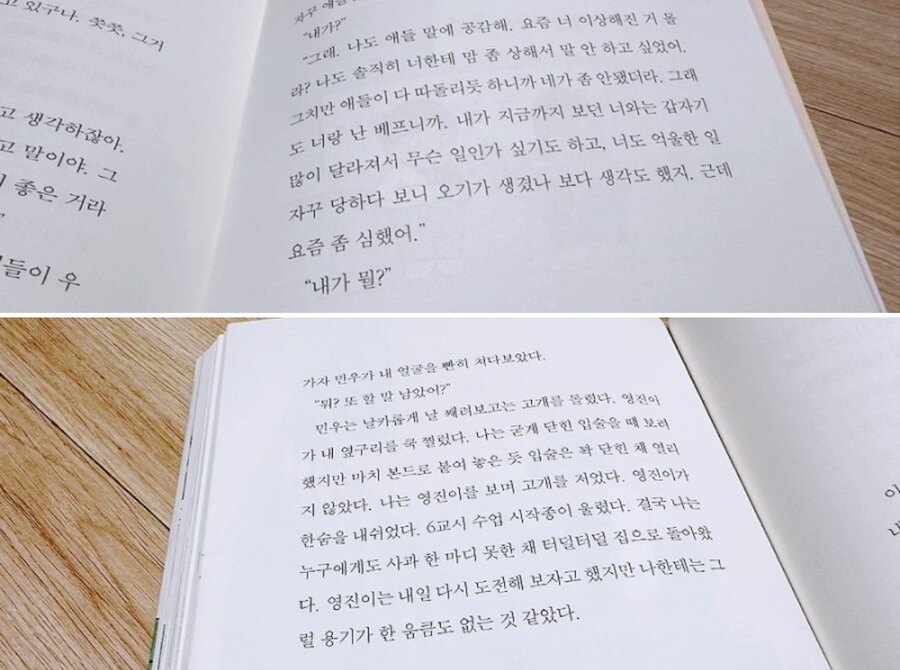 고 있구나. 쯧쯧, 그거
고 생각하잖아.
고 말이야. 그
좋은 거라
들이 우
자꾸 애들
“내가?”
“그래. 나도 애들 말에 공감해. 요즘 너 이상해진 거 몰
라? 나도 솔직히 너한테 맘 좀 상해서 말 안 하고 싶었어.
그치만 애들이 다 따돌리듯 하니까 네가 좀 안됐더라. 그래
도 너랑 난 베프니까. 내가 지금까지 보던 너와는 갑자기
많이 달라져서 무슨 일인가 싶기도 하고, 너도 억울한 일
자꾸 당하다 보니 오기가 생겼나 보다 생각도 했지. 근데
요즘 좀 심했어.”
“내가 뭘?”
가자 민우가 내 얼굴을 빤히 쳐다보았다.
“뭐? 또 할 말 남았어?”
민우는 날카롭게 날 째려보고는 고개를 돌렸다. 영진이
가 내 옆구리를 쿡 찔렀다. 나는 굳게 닫힌 입술을 떼 보려
했지만 마치 본드로 붙여 놓은 듯 입술은 꽉 닫힌 채 열리
지 않았다. 나는 영진이를 보며 고개를 저었다. 영진이가
한숨을 내쉬었다. 6교시 수업 시작종이 울렸다. 결국 나는
누구에게도 사과 한 마디 못한 채 터덜터덜 집으로 돌아왔
다. 영진이는 내일 다시 도전해 보자고 했지만 나한테는 그
럴 용기가 한 움큼도 없는 것 같았다.